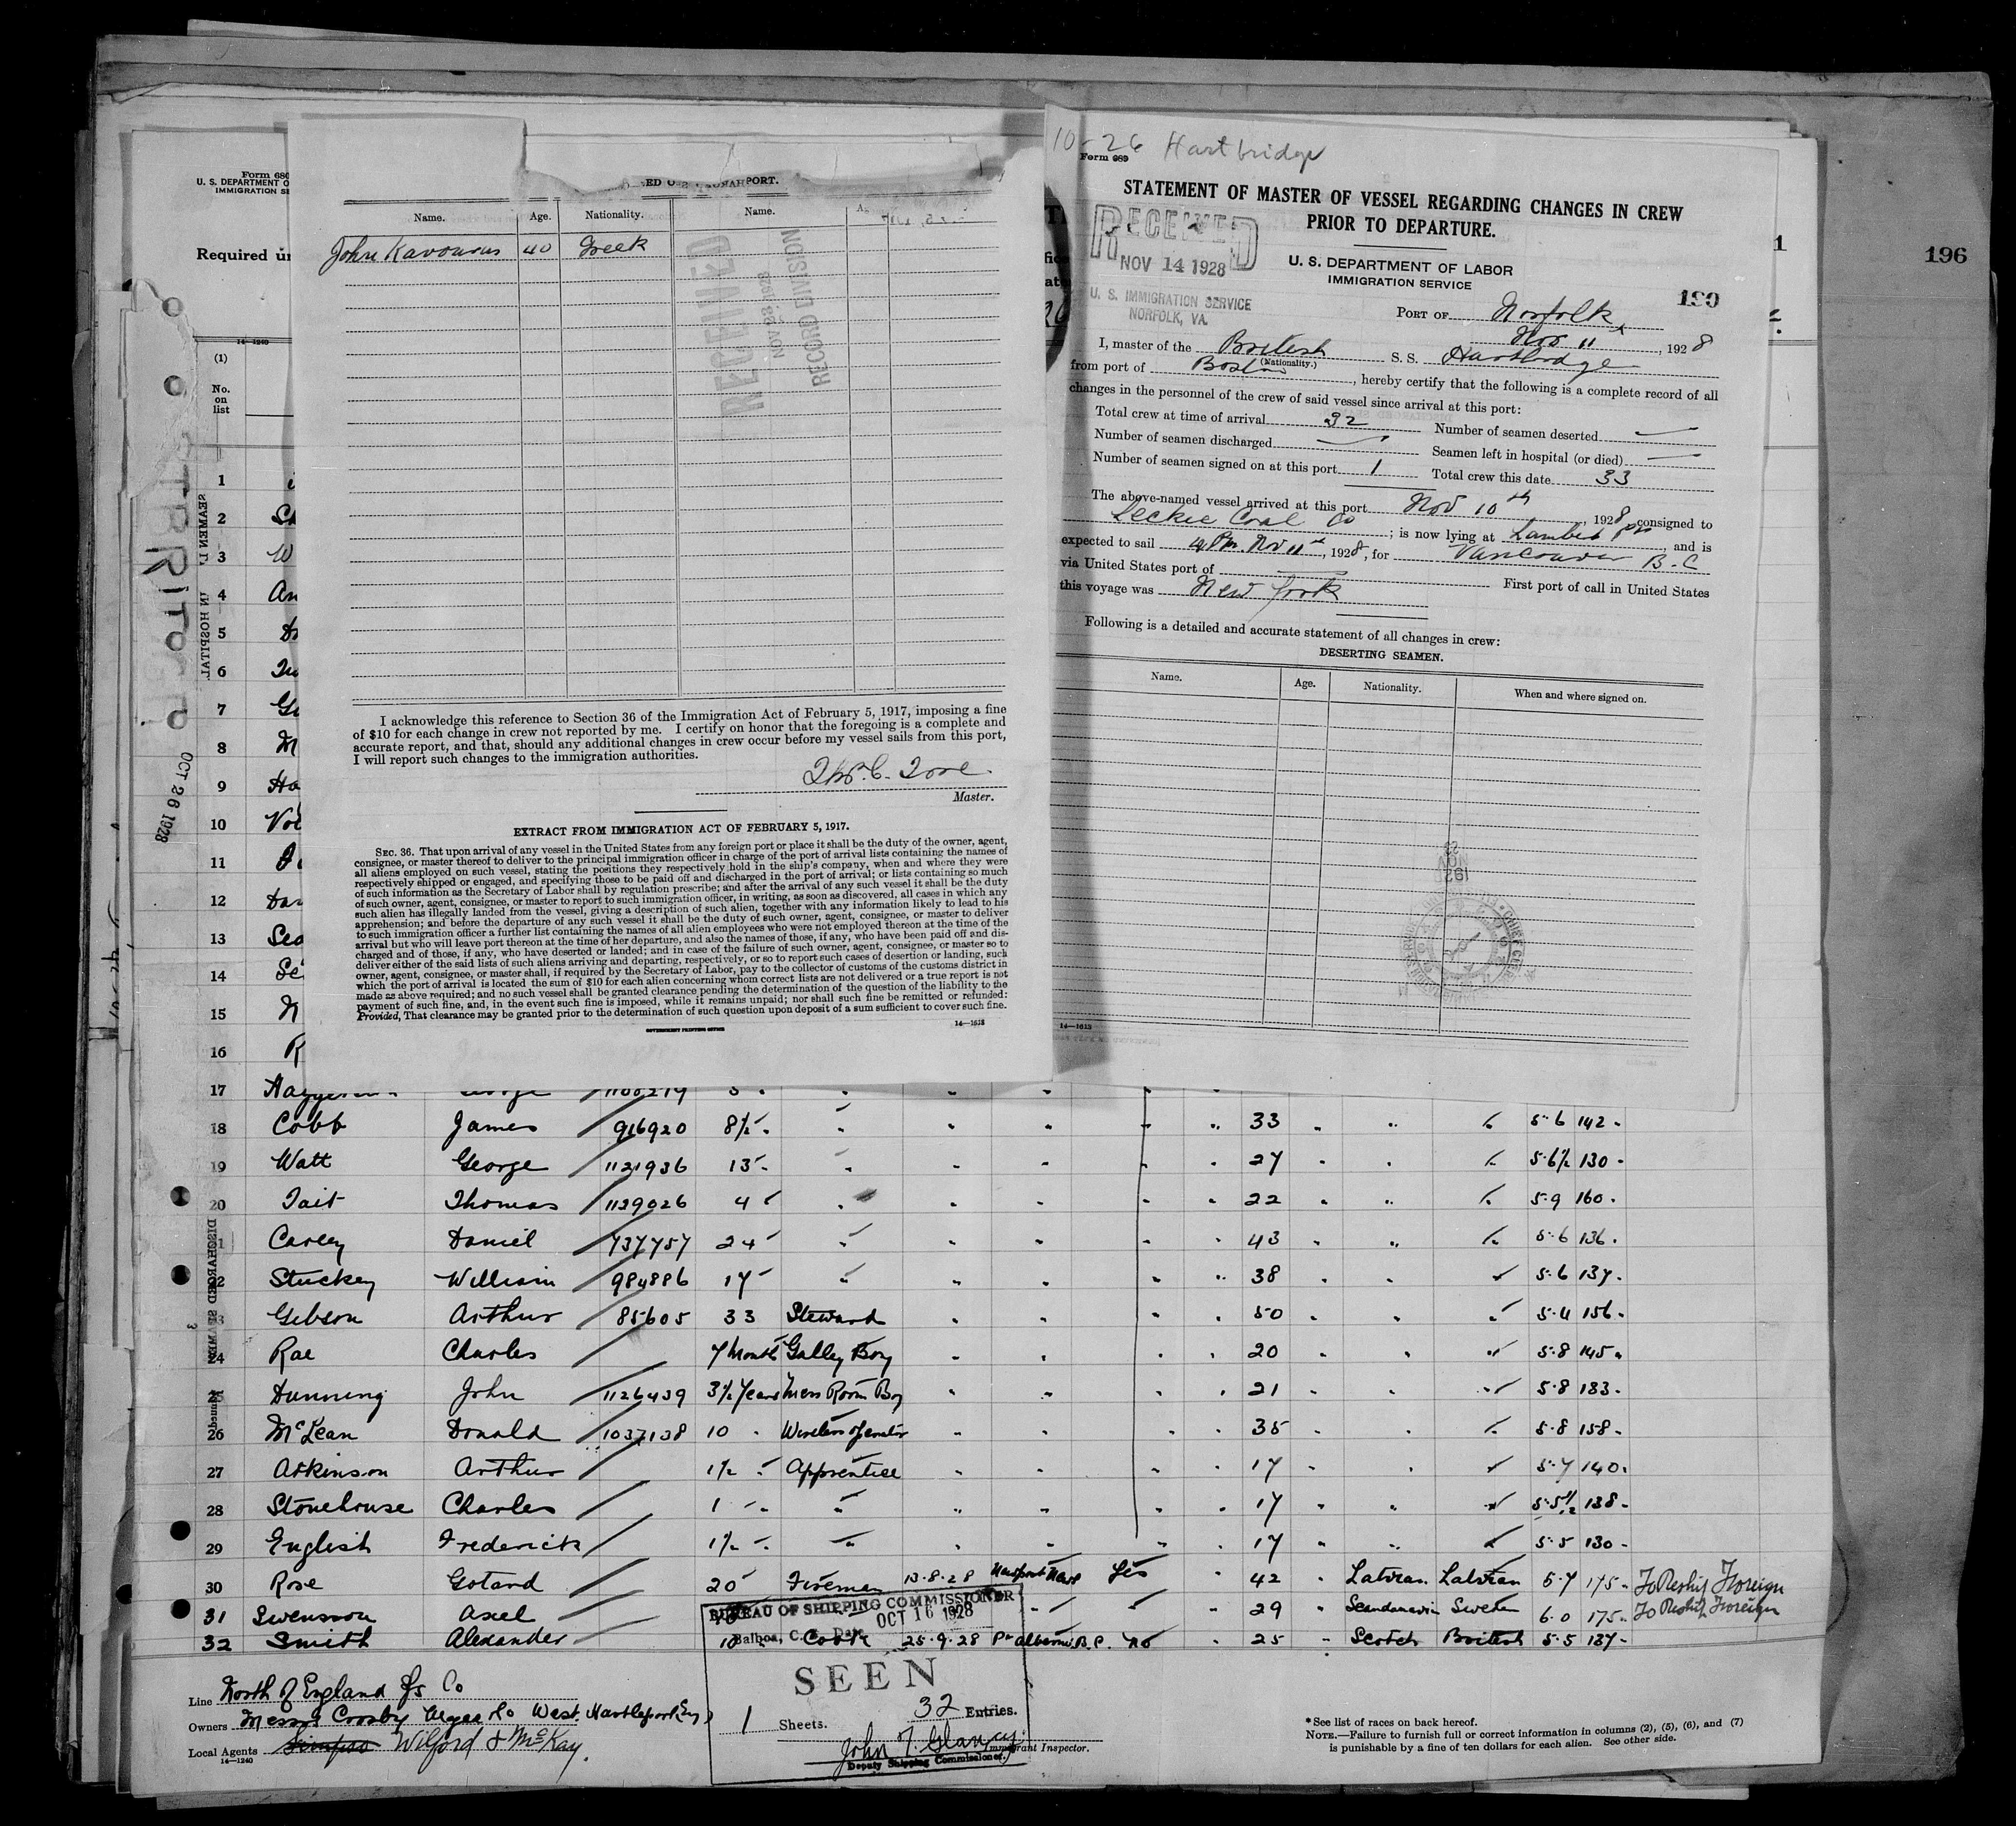 Form 680
U. S. DEPARTMENT O
IMMIGRATION SE
Required un
14—1240
(1)
No.
on
list
OCT 26 1928
SEAMEN L
IN HOSPITAL
1
2
3 W
4 An
5
6
7 Ge
8 M
9 Ha
10 Voe
11
12 Dar
13 Sea
14
15
16 R
PORT.
Name. Age. Nationality. Name.
John Kavouras 40 Greek
RECEIVED
NOV 28 1928
RECORD DIVISION
I acknowledge this reference to Section 36 of the Immigration Act of February 5, 1917, imposing a fine
of $10 for each change in crew not reported by me. I certify on honor that the foregoing is a complete and
accurate report, and that, should any additional changes in crew occur before my vessel sails from this port,
I will report such changes to the immigration authorities.
Master.
EXTRACT FROM IMMIGRATION ACT OF FEBRUARY 5, 1917.
SEC. 36. That upon arrival of any vessel in the United States from any foreign port or place it shall be the duty of the owner, agent,
consignee, or master thereof to deliver to the principal immigration officer in charge of the port of arrival lists containing the names of
all aliens employed on such vessel, stating the positions they respectively hold in the ship's company, when and where they were
respectively shipped or engaged, and specifying those to be paid off and discharged in the port of arrival; or lists containing so much
of such information as the Secretary of Labor shall by regulation prescribe; and after the arrival of any such vessel it shall be the duty
of such owner, agent, consignee, or master to report to such immigration officer, in writing, as soon as discovered, all cases in which any
such alien has illegally landed from the vessel, giving a description of such alien, together with any information likely to lead to his
apprehension; and before the departure of any such vessel it shall be the duty of such owner, agent, consignee, or master to deliver
to such immigration officer a further list containing the names of all alien employees who were not employed thereon at the time of the
arrival but who will leave port thereon at the time of her departure, and also the names of those, if any, who have been paid off and dis-
charged and of those, if any, who have deserted or landed; and in case of the failure of such owner, agent, consignee, or master so to
deliver either of the said lists of such aliens arriving and departing, respectively, or so to report such cases of desertion or landing, such
owner, agent, consignee, or master shall, if required by the Secretary of Labor, pay to the collector of customs of the customs district in
which the port of arrival is located the sum of $10 for each alien concerning whom correct lists are not delivered or a true report is not
made as above required; and no such vessel shall be granted clearance pending the determination of the question of the liability to the
payment of such fine, and, in the event such fine is imposed, while it remains unpaid; nor shall such fine be remitted or refunded:
Provided, That clearance may be granted prior to the determination of such question upon deposit of a sum sufficient to cover such fine.
GOVERNMENT PRINTING OFFICE 14—1613
10-26 Hartbridge
Form 689
STATEMENT OF MASTER OF VESSEL REGARDING CHANGES IN CREW
PRIOR TO DEPARTURE.
RECEIVED
NOV 14 1928
U. S. IMMIGRATION SERVICE
NORFOLK, VA.
U. S. DEPARTMENT OF LABOR
IMMIGRATION SERVICE
190
196
PORT OF Norfolk
Nov 11, 1928
I, master of the British S. S. Hartbridge
(Nationality.)
from port of Boston, hereby certify that the following is a complete record of all
changes in the personnel of the crew of said vessel since arrival at this port:
Total crew at time of arrival 32 Number of seamen deserted —
Number of seamen discharged — Seamen left in hospital (or died) —
Number of seamen signed on at this port 1 Total crew this date 33
The above-named vessel arrived at this port Nov 10th, 1928, consigned to
Leckie Coal Co; is now lying at Lambert pt, and is
expected to sail 4 Pm. Nov 11th, 1928, for Vancouver B.C
via United States port of — First port of call in United States
this voyage was New York
Following is a detailed and accurate statement of all changes in crew:
DESERTING SEAMEN.
Name. Age. Nationality. When and where signed on.
14—1613
17 George 1100219
18 Cobb James 916920 8½ " " " " " " 33 " " " 5-6 142
19 Watt George 1121936 13 " " " " " " 27 " " " 5-6½ 130
20 Tait Thomas 1129026 4 " " " " " " 22 " " " 5-9 160
Carley Daniel 737757 24 " " " " " " 43 " " " 5-6 136
Stuckey William 984886 17 " " " " " " 38 " " " 5-6 137
Gibson Arthur 85605 33 Steward " " " " 50 " " " 5-4 156
24 Rae Charles 7 Month Galley Boy " " " " 20 " " " 5-8 145
Dunning John 1126439 3½ Years Mess Room Boy " " " " 21 " " " 5-8 133
26 McLean Donald 1037138 10 " Wireless Operator " " " " 35 " " " 5-8 158
27 Atkinson Arthur 1½ " Apprentice " " " " 17 " " " 5-7 140
28 Stonehouse Charles 1 " " " " " " 17 " " " 5-5½ 138
29 English Frederick 1½ " " " " " " 17 " " " 5-5 130
30 Rose Gotard 20 Fireman 13-8-28 Newport News Yes " 42 " Latvian Latvian 5-7 175 To Reship Foreign
31 Swensson Axel 10 " " " " " 29 " Scandanavia Sweden 6-0 175 To Reship Foreign
32 Smith Alexander 10 " Cook 25-9-28 Pt Alberni B.C. No " 25 " Scotch British 5-5 137
BUREAU OF SHIPPING COMMISSIONER
Balboa, C. Z. Date OCT 16 1928
SEEN
1 Sheets. 32 Entries.
John T. Glancy
Immigrant Inspector.
Deputy Shipping Commissioner.
Line North of England Ss Co
Owners Messrs Crosby Magee Co West Hartlepool Eng
Local Agents Simpson Wilford & McKay.
14—1240
* See list of races on back hereof.
NOTE.—Failure to furnish full or correct information in columns (2), (5), (6), and (7)
is punishable by a fine of ten dollars for each alien. See other side.